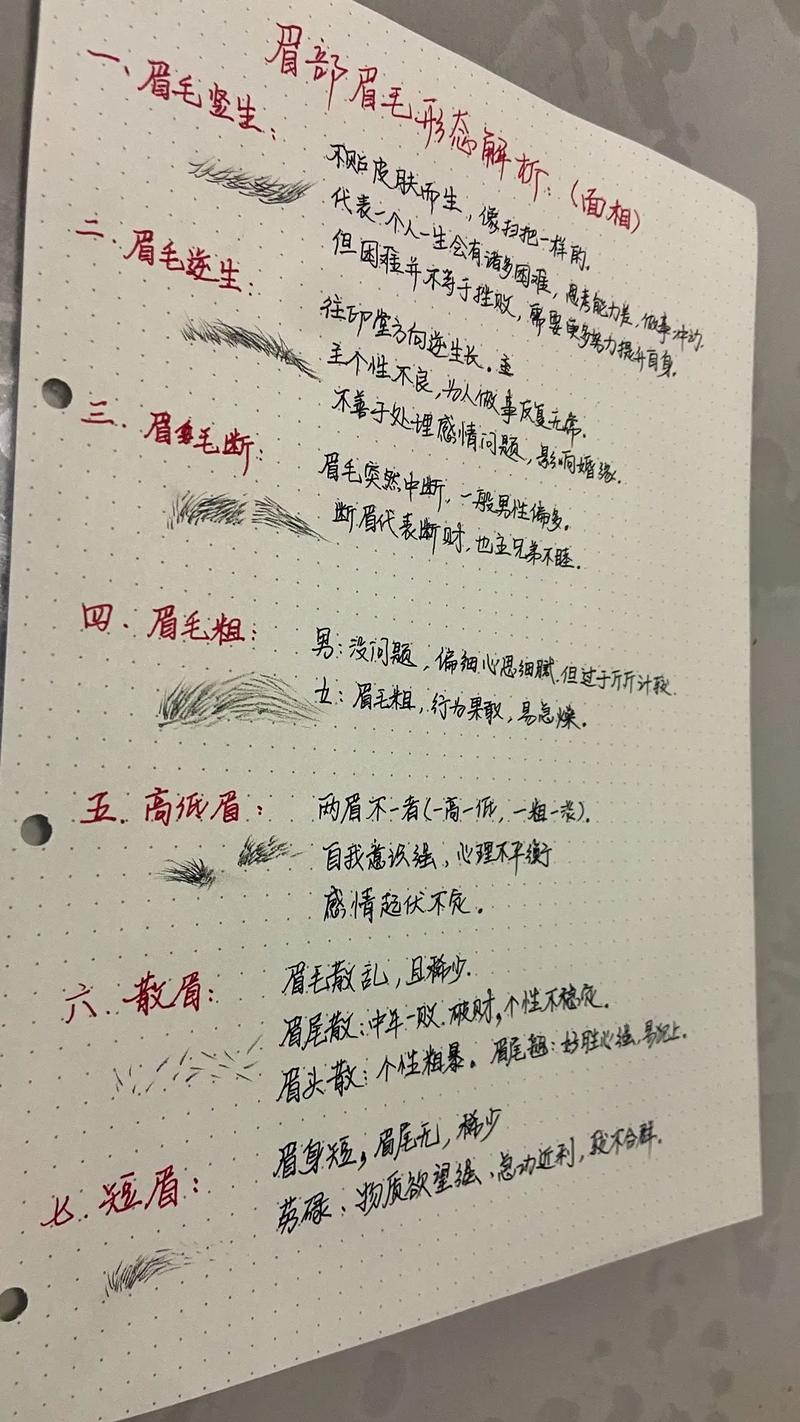 眉部眉毛形态解析:(面相)
一、眉毛竖生:
不贴皮肤而生,像扫把一样的.
代表一个人一生会有诸多困难,思考能力差,做事冲动.
但困难并不等于挫败,需要更多努力提升自身.
二.眉毛逆生:
往印堂方向逆生长.
主个性不良,为人做事反复无常.
不善于处理感情问题,影响婚缘.
三.眉毛断:
眉毛突然中断,一般男性偏多.
断眉代表断财,也主兄弟不睦.
四.眉毛粗:
男:没问题,偏细心思细腻.但过于斤斤计较.
女:眉毛粗,行为果敢,易急燥.
五.高低眉:
两眉不一者(一高一低,一粗一淡).
自我意识强、心理不平衡
感情起伏不定.
六.散眉:
眉毛散乱,且稀少.
眉尾散:中年一败.破财,个性不稳定.
眉头散:个性粗暴。眉尾翘:好胜心强,易犯上.
七.短眉:
眉身短,眉尾无,稀少
劳碌、物质欲望强、急功近利,我不合群.